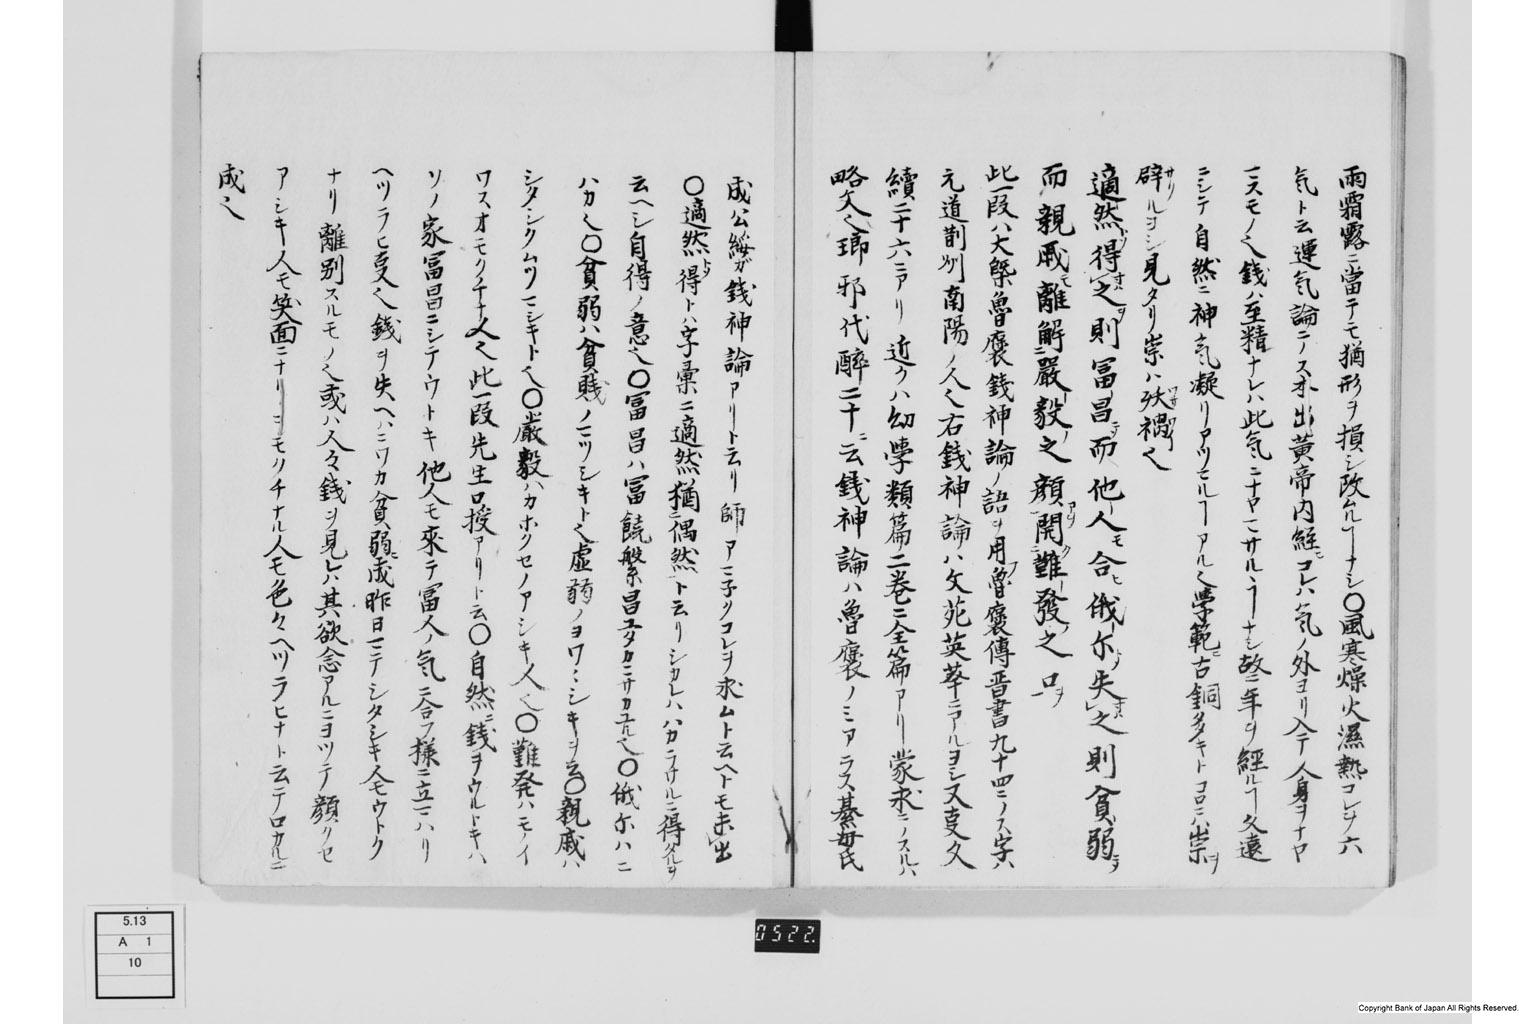 雨霜露ニ當テモ猶形ヲ損シ改ムルヿナシ〇風寒燥火濕熱コレヲ六
気ト云運気論ニノス本出黄帝内経ニコレハ気ノ外ヨリ入テ人身ヲナヤ
マスモノ也錢ハ至精ナレハ此気ニナヤマサルヽヿナシ故ニ年ヲ經ルヿ久遠
ニシテ自然ニ神気凝リアツモルヿアル也學範ニ古銅多キトコロニハ崇ヲ
辟サルルヨシ見タリ崇ハ殃禍也
適然得之則冨昌而他人モ合ヒ俄尓失之則貧弱ヲ
而親戚モ離解ニ嚴毅之顔開難發之口ヲ
此一段ハ大槩魯褒銭神論ノ語ヲ用魯褒傳晋書九十四ニノス字ハ
元道荊州南陽ノ人也右銭神論ハ文苑英華ニアルヨシ又事文
續二十六ニアリ近クハ幼學類篇二巻ニ全篇アリ蒙求ニノスルハ
略文也瑯邪代醉二十ニ云銭神論ハ魯褒ノミアラス綦毋氏
成公綏ガ銭神論アリト云リ師アマ子クコレヲ求ムト云ヘトモ未出
〇適然得トハ字彙ニ適然猶偶然ト云リシカレハハカラサルニ得タルヲ
云ヘシ自得ノ意也〇冨昌ハ冨饒繁昌ユタカニサカユル也〇俄尓ハニ
ハカ也〇貧弱ハ貧賤ノマツシキト也虚弱ノヨワヽシキヲ云〇親戚ハ
シタシクムツマシキト也〇嚴毅ハカホツセノアシキ人也〇難発ハモノイ
ワスオモクチナ人也此一段先生口授アリト云〇自然ニ銭ヲウルトキハ
ソノ家冨昌ニシテウトキ他人モ來テ冨人ノ気ニ合フ様ニ立マハリ
ヘツラヒ支也銭ヲ失ヘハニワカ貧弱ニ成昨日マテシタシキ人モウトク
ナリ離別スルモノ也或ハ人々銭ヲ見レハ其欲念アルニヨツテ顔クセ
アシキ人モ笑面ニナリヲモクチナル人モ色々ヘツラヒナト云テロカルニ
成也
5.13
A 1
10
0522.
Copyright Bank of Japan All Rights Reserved.